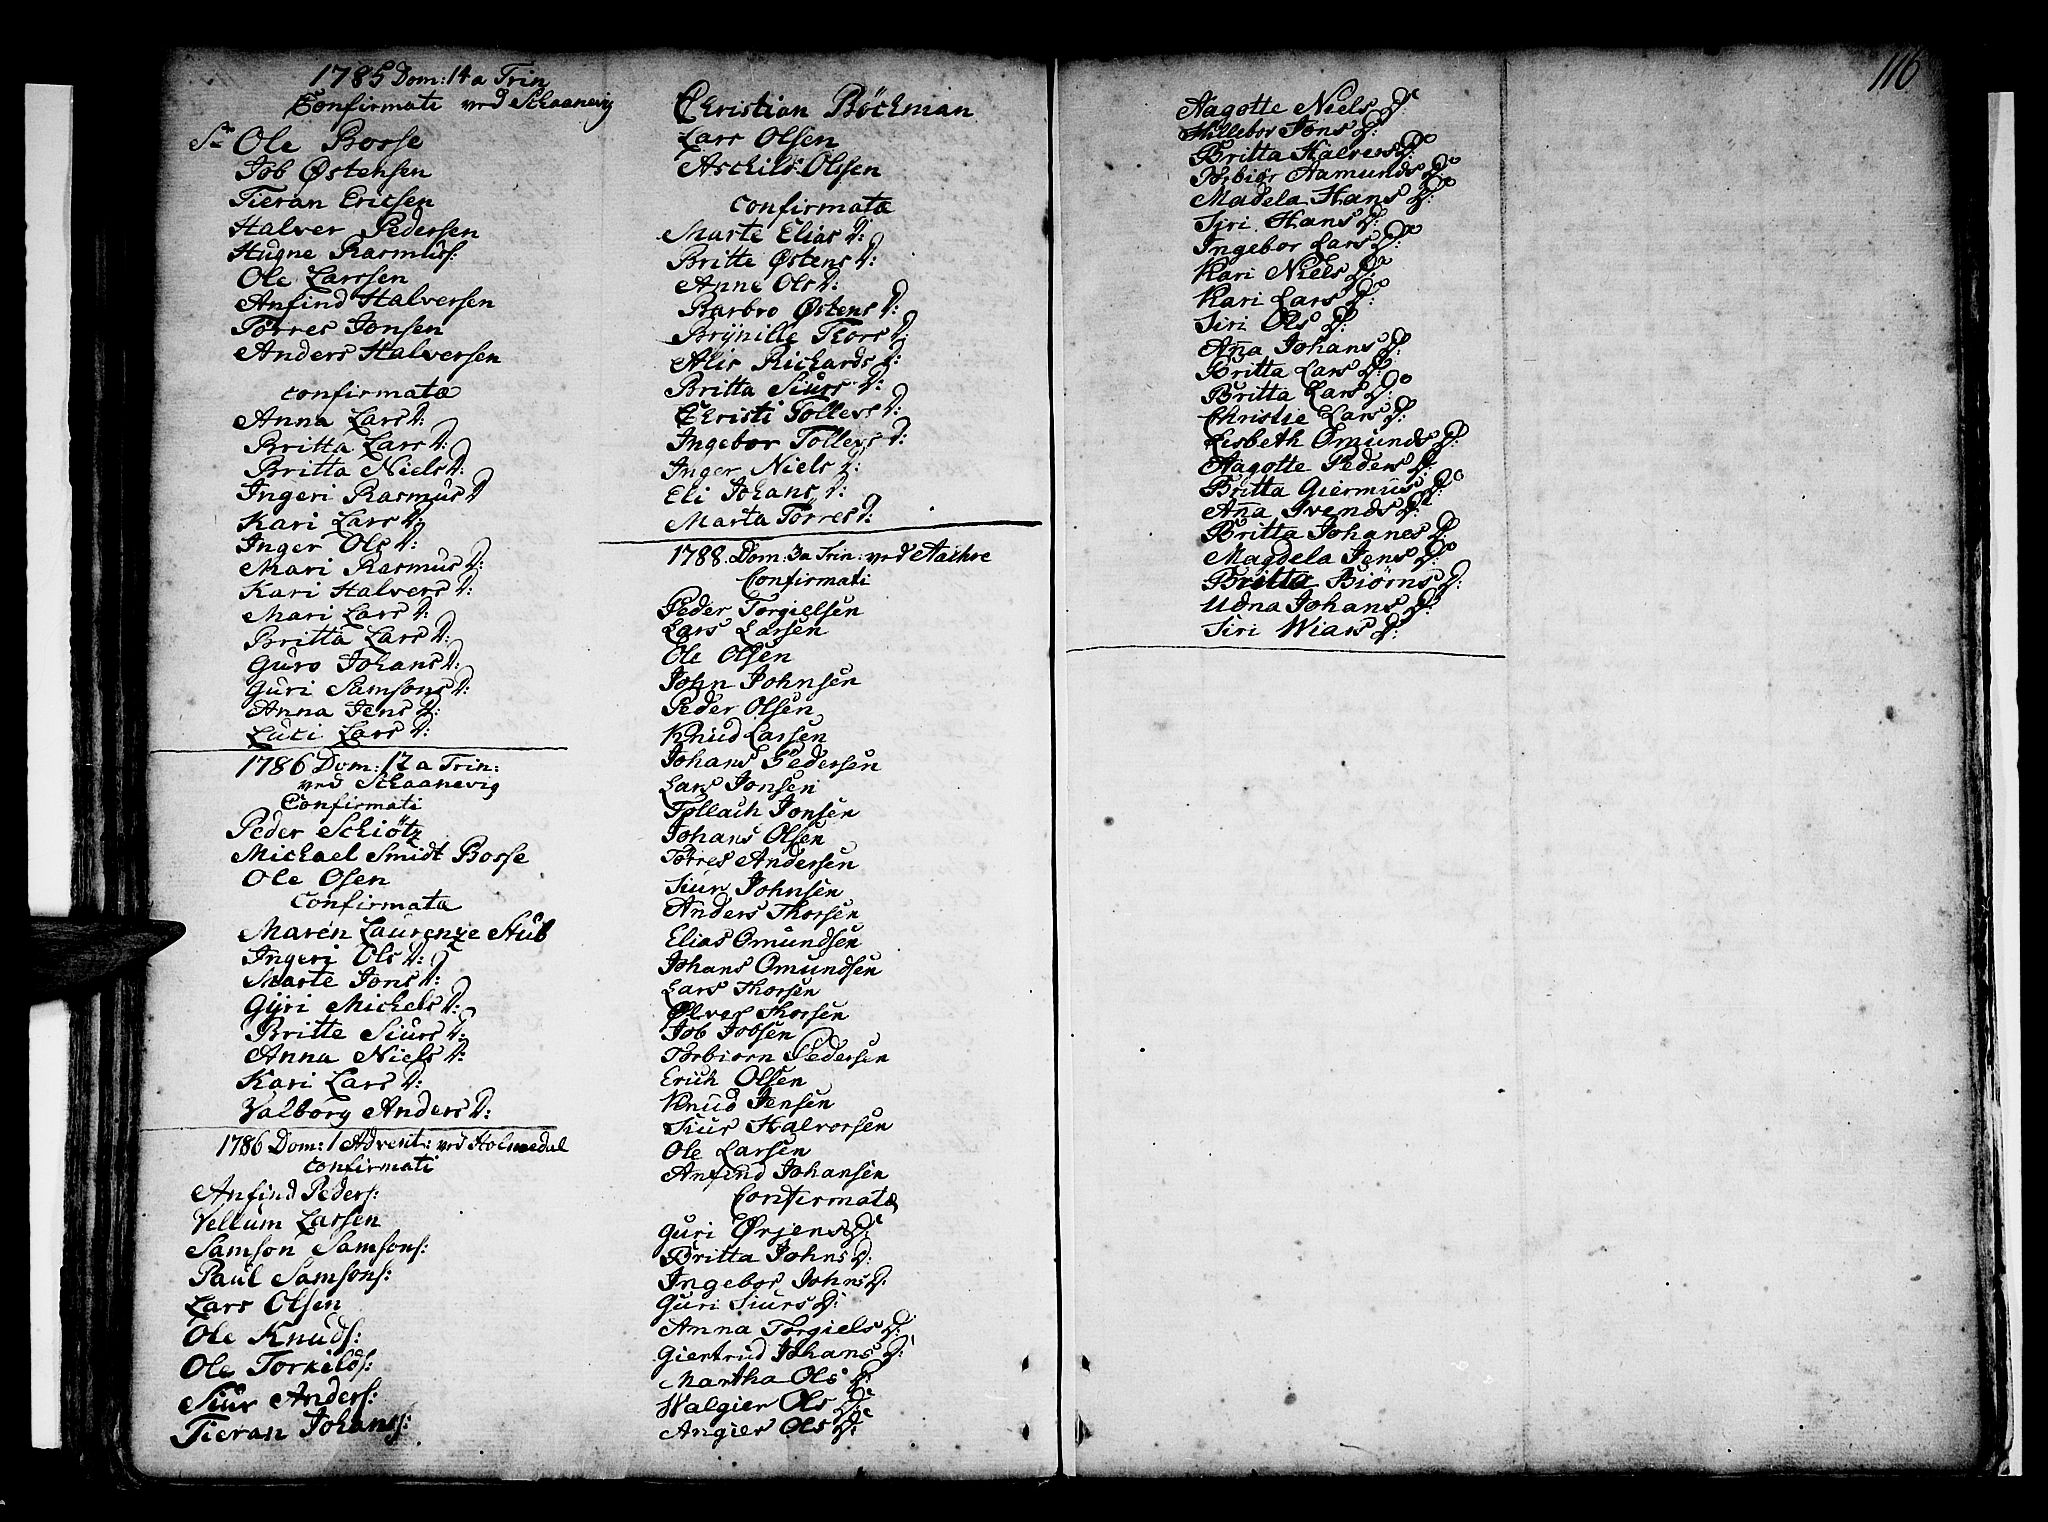 1785 Dom: 14 a Trin
Confirmati ved Schaanevig
Sr Ole Borse
Job Østensen
Tieran Ericsen
Halver Pedersen
Hugne Rasmus:
Ole Larssen
Anfind Halversen
Törres Jonsen
Anders Halversen
confirmatæ
Anna Lars D:
Britta Lars D:
Britta Niels D:
Ingeri Rasmus D
Kari Lars D:
Inger Ols D:
Mari Rasmus D:
Kari Halvers D:
Mari Lars D:
Britta Lars D:
Guro Johans D:
Guri Samsons D:
Anna Jens D:
Luci Lars D:
1786 Dom: 12 a Trin:
ved Schaanevig
Confirmati
Peder Schiötz
Michael Smidt Borse
Ole Osen
Confirmatæ
Maren Laurenze Stub
Ingeri Ols D:
Marte Jons D:
Gyri Michels D:
Britte Siurs D:
Anna Niels D:
Kari Lars D:
Valborg Anders D:
1786 Dom: 1 Advent: ved Holmedal
confirmati
Anfind Peders:
Vellum Larsen
Samson Samsons:
Paul Samsons:
Lars Olsen
Ole Knuds:
Ole Torkilds:
Siur Anders:
Tieran Johans:
Christian Böckman
Lars Olsen
Aschild Olssen
confirmatæ
Marte Elias D:
Britte Østens D:
Anne Ols D:
Barbro Østens D:
Brynille Thors D:
Alis Richards D:
Britta Siurs D:
Christi Tollevs D:
Ingebor Tollevs D:
Inger Niels D:
Eli Johans D:
Marta Törres D:
1788. Dom: 3 a Trin: ved Aachre
Confirmati
Peder Torgielsen
Lars Larsen
Ole Olsen
John Johnsen
Peder Olsen
Knud Larsen
Johans Pedersen
Lars Jonsen
Tollach Jonsen
Johans Olsen
Törres Andersen
Siur Johnsen
Anders Thorsen
Elias Omundsen
Johans Omundsen
Lars Thorsen
Ølver Thorsen
Job Jobsen
Torbiorn Pedersen
Erich Olsen
Knud Jensen
Siur Halvorsen
Ole Larsen
Anfind Johansen
Confirmatæ
Guri Ørjens D:
Britta Johns D:
Ingebor Johns D:
Guri Siurs D:
Anna Torgiels D:
Giertrud Johans D:
Martha Ols D:
Walgier Ols D:
Angier Ols D:
116
Aagotte Niels D:
Hillebor Jons D:
Britta Halvors D:
Torbiør Aamunds D:
Madela Hans D:
Siri Hans D:
Ingebor Lars D:
Kari Niels D:
Kari Lars D:
Siri Ols D:
Aña Johans D:
Britta Lars D:
Britta Lars D:
Christie Lars D:
Lisbeth Omunds D:
Aagotte Peders D:
Britta Giermus D:
Aña Ivends D:
Britta Johanes D:
Magdela Jens D:
Britta Biörns D:
Udna Johans D:
Siri Wiars D: